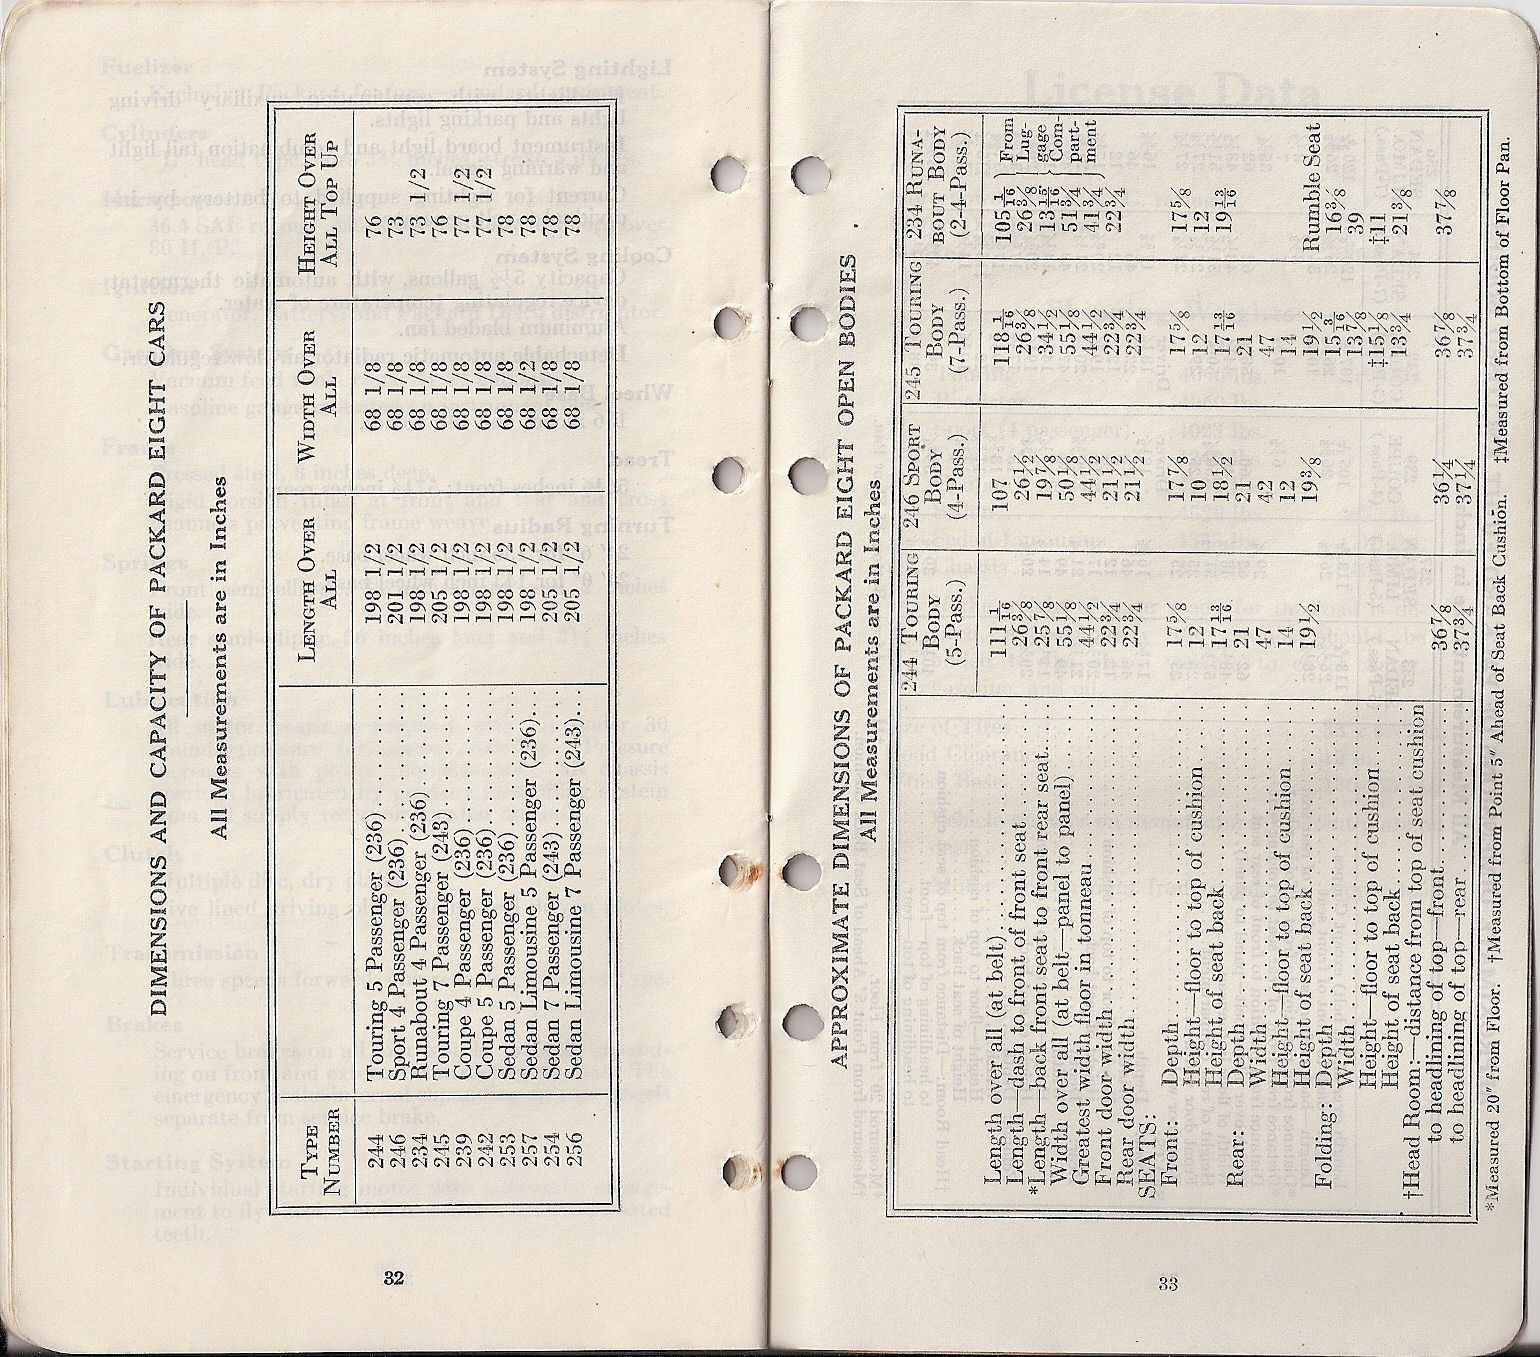 DIMENSIONS AND CAPACITY OF PACKARD EIGHT CARS
All Measurements are in Inches
TYPE NUMBER LENGTH OVER ALL WIDTH OVER ALL HEIGHT OVER ALL TOP UP
244 Touring 5 Passenger (236) 198 1/2 68 1/8 76
246 Sport 4 Passenger (236) 201 1/2 68 1/8 73
234 Runabout 4 Passenger (236) 198 1/2 68 1/8 73 1/2
245 Touring 7 Passenger (243) 205 1/2 68 1/8 76
239 Coupe 4 Passenger (236) 198 1/2 68 1/8 77 1/2
242 Coupe 5 Passenger (236) 198 1/2 68 1/8 77 1/2
253 Sedan 5 Passenger (236) 198 1/2 68 1/8 78
257 Sedan Limousine 5 Passenger (236) 198 1/2 68 1/2 78
254 Sedan 7 Passenger (243) 205 1/2 68 1/8 78
256 Sedan Limousine 7 Passenger (243) 205 1/2 68 1/8 78
32
APPROXIMATE DIMENSIONS OF PACKARD EIGHT OPEN BODIES
All Measurements are in Inches
244 TOURING BODY (5-Pass.) 246 SPORT BODY (4-Pass.) 245 TOURING BODY (7-Pass.) 234 RUNA-BOUT BODY (2-4-Pass.)
Length over all (at belt) 111 1/16 107 118 1/16 105 1/16 From Lug-gage Com-part-ment
Length—dash to front of front seat 26 3/8 26 1/2 26 3/8 26 3/8
*Length—back front seat to front rear seat 25 7/8 19 7/8 34 1/2 13 15/16
Width over all (at belt—panel to panel) 55 1/8 50 1/8 55 1/8 51 3/4
Greatest width floor in tonneau 44 1/2 44 1/2 44 1/2 41 3/4
Front door width 22 3/4 21 1/2 22 3/4 22 3/4
Rear door width 22 3/4 21 1/2 22 3/4
SEATS:
Front: Depth 17 5/8 17 7/8 17 5/8 17 5/8
Height—floor to top of cushion 12 10 3/4 12 12
Height of seat back 17 13/16 18 1/2 17 13/16 19 13/16
Rear: Depth 21 21 21
Width 47 42 47
Height—floor to top of cushion 14 12 14
Height of seat back 19 1/2 19 3/8 19 1/2 Rumble Seat
Folding: Depth 15 3/16 16 3/8
Width 13 7/8 39
Height—floor to top of cushion ‡15 1/8 ‡11
Height of seat back 13 3/4 21 3/8
†Head Room:—distance from top of seat cushion
to headlining of top—front 36 7/8 36 1/4 36 7/8 37 7/8
to headlining of top—rear 37 3/4 37 1/4 37 3/4
*Measured 20" from Floor. †Measured from Point 5" Ahead of Seat Back Cushion. ‡Measured from Bottom of Floor Pan.
33